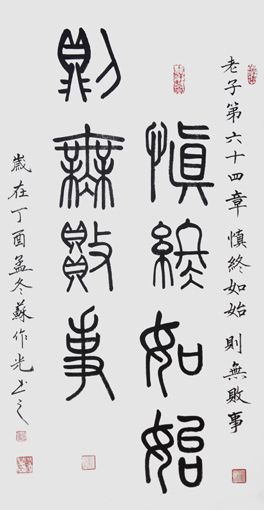 老子第六十四章 慎終如始 則無敗事
慎終如始
則無敗事
歲在丁酉孟冬蘇作光書之